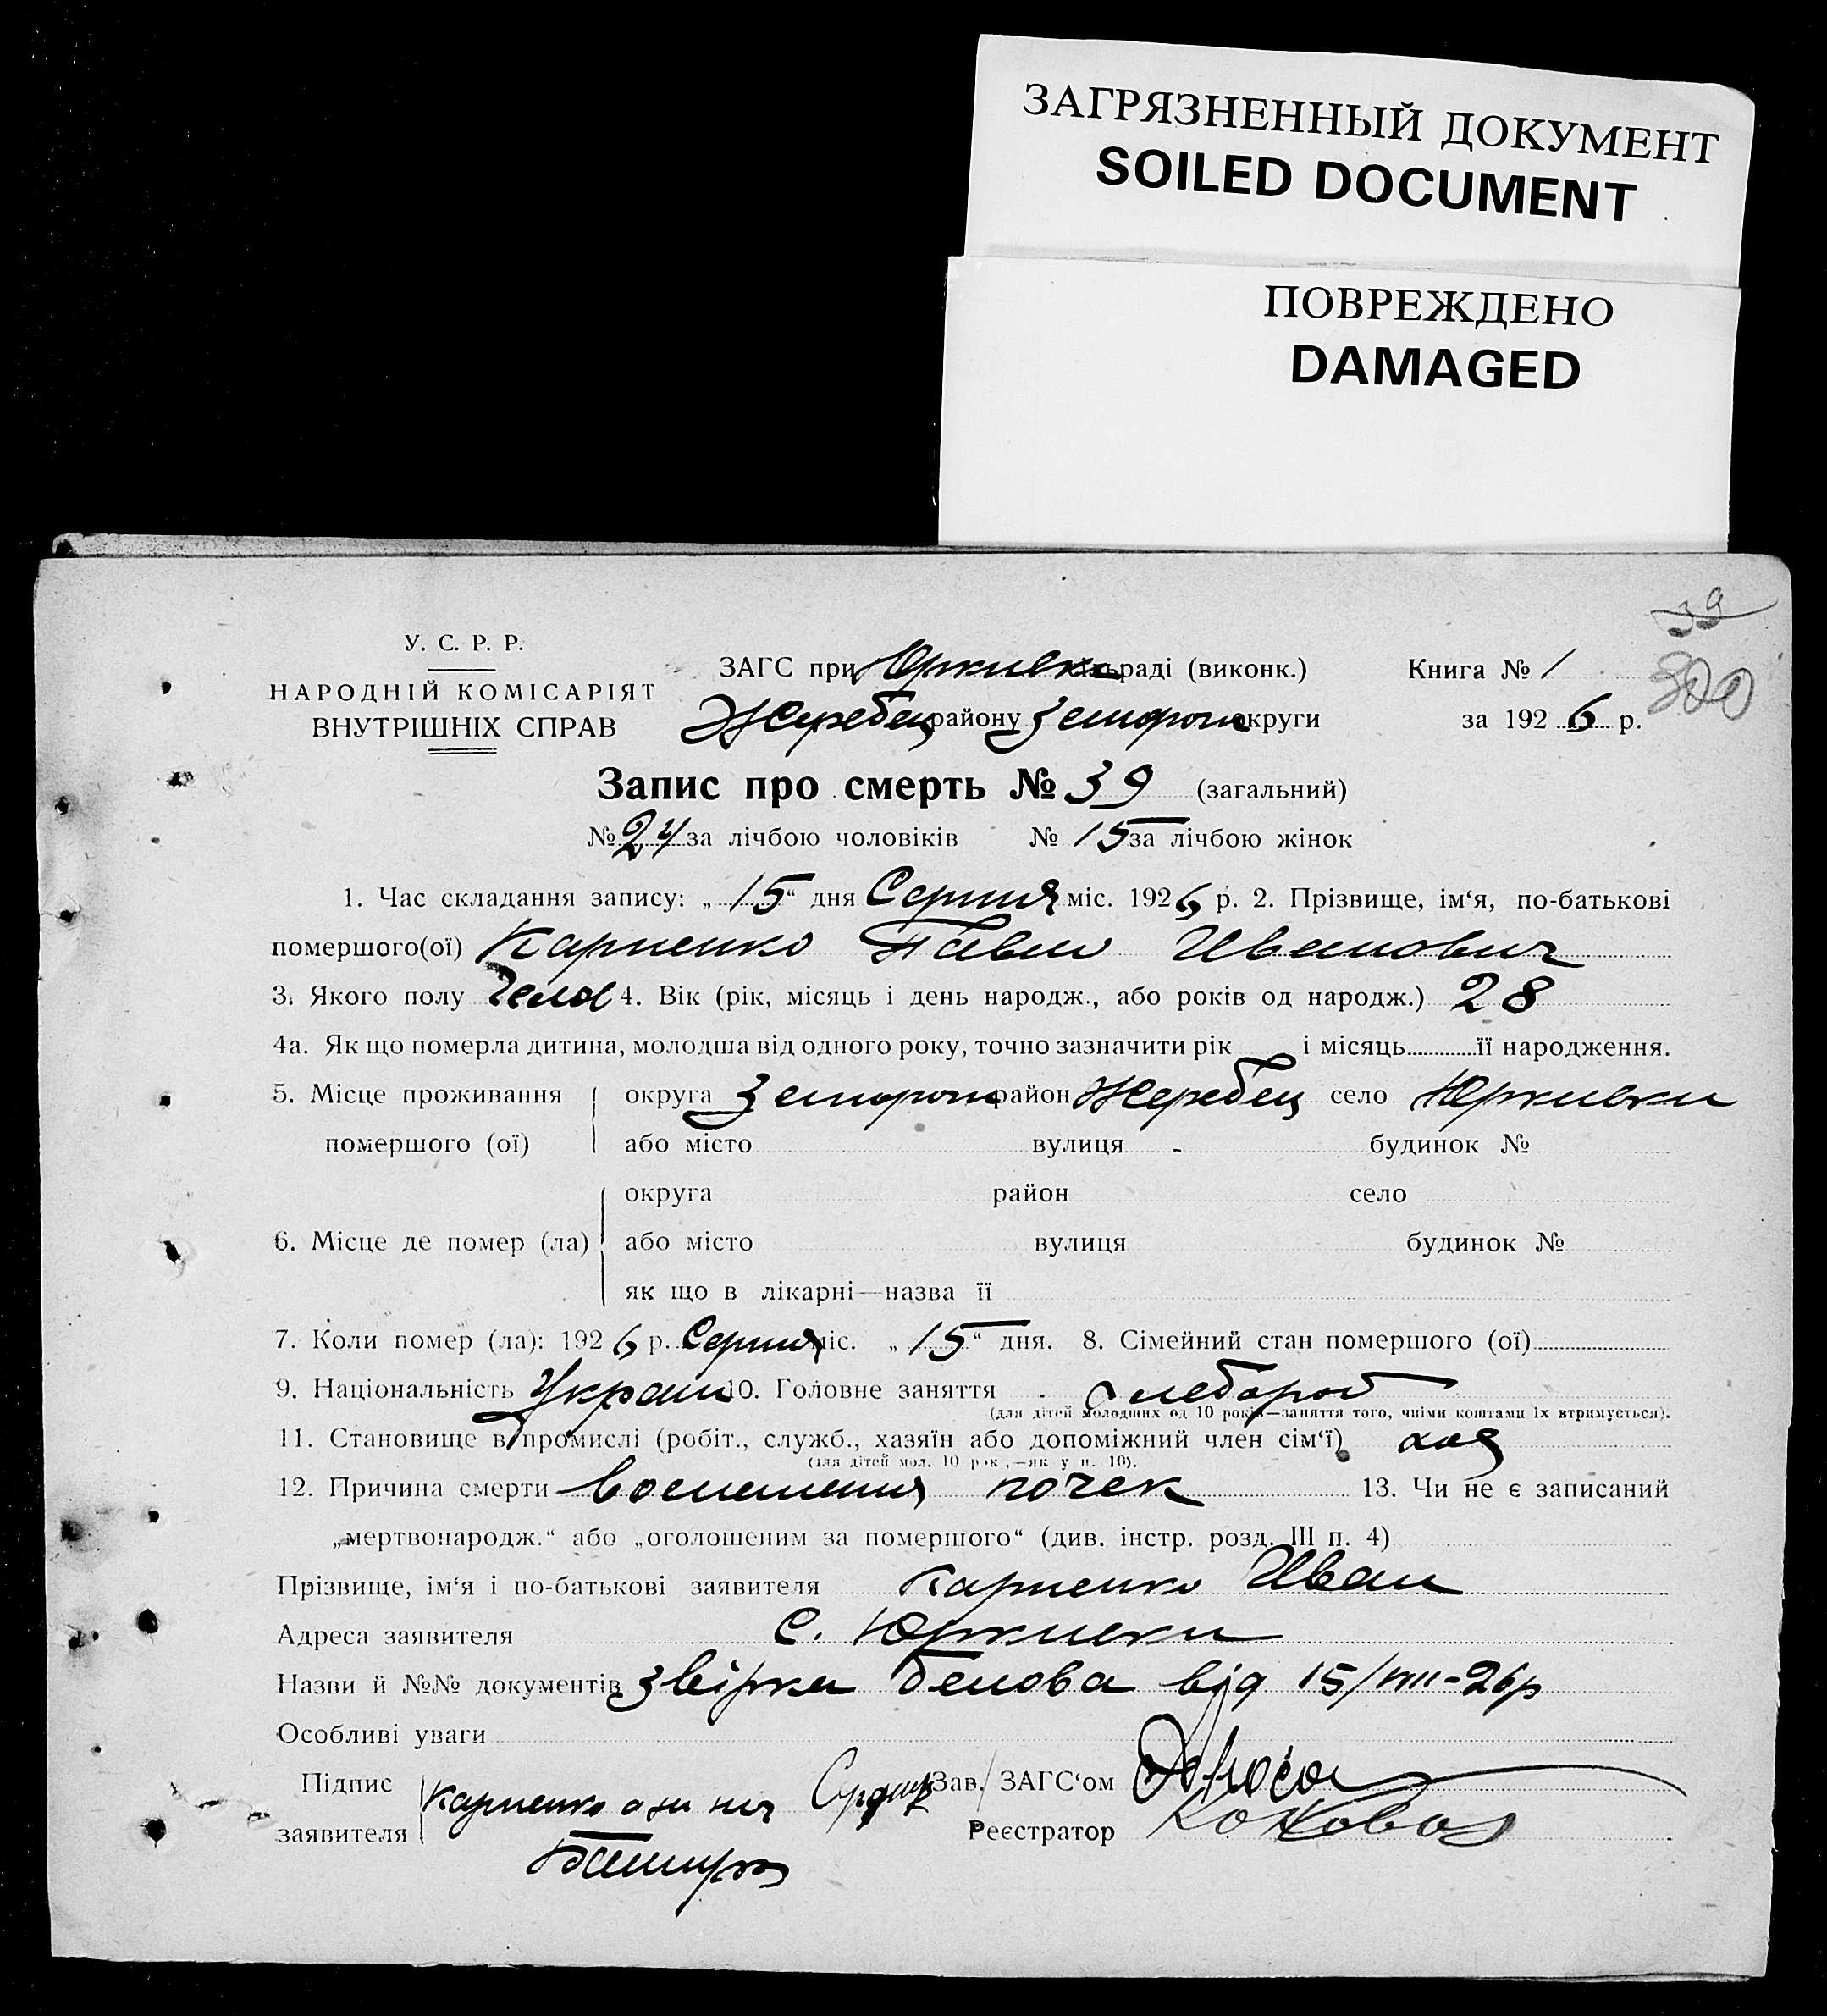 ЗАГРЯЗНЕННЫЙ ДОКУМЕНТ
SOILED DOCUMENT
ПОВРЕЖДЕНО
DAMAGED
39
300
У. С. Р. Р.
НАРОДНІЙ КОМІСАРІЯТ
ВНУТРІШНІХ СПРАВ
ЗАГС при Юркивск раді (виконк.) Книга № 1
Жеребец району Запорож округи за 1926 р.
Запис про смерть № 39 (загальний)
№ 24 за лічбою чоловіків № 15 за лічбою жінок
1. Час складання запису: „15“ дня Серпня міс. 1926 р. 2. Прізвище, ім‘я, по-батькові
помершого(ої) Карпенко Павло Иванович
3. Якого полу Чолов 4. Вік (рік, місяць і день народж., або років од народж.) 28
4а. Як що померла дитина, молодша від одного року, точно зазначити рік і місяць її народження.
5. Місце проживання округа Запорож район Жеребец село Юркивки
помершого (ої) або місто вулиця - будинок №
округа район село
6. Місце де помер (ла) або місто вулиця будинок №
як що в лікарні—назва її
7. Коли помер (ла): 1926 р. Серпня міс. „15“ дня. 8. Сімейний стан помершого (ої)
9. Національність Украин 10. Головне заняття хлебороб
(для дітей молодших од 10 років—заняття того, чиїми коштами їх втримується).
11. Становище в промислі (робіт., служб., хазяїн або допоміжний член сім‘ї) хоз
(для дітей мол. 10 рок,—як у п. 10).
12. Причина смерти Воспаления почек 13. Чи не є записаний
„мертвонародж.“ або „оголошеним за помершого“ (див. інстр. розд. III п. 4)
Прізвище, ім‘я і по-батькові заявителя Карпенко Иван
Адреса заявителя с. Юркивки
Назви й №№ документів від 15/VIII-26р
Особливі уваги
Підпис Карпенко а за Зав. ЗАГС‘ом
заявителя Реєстратор